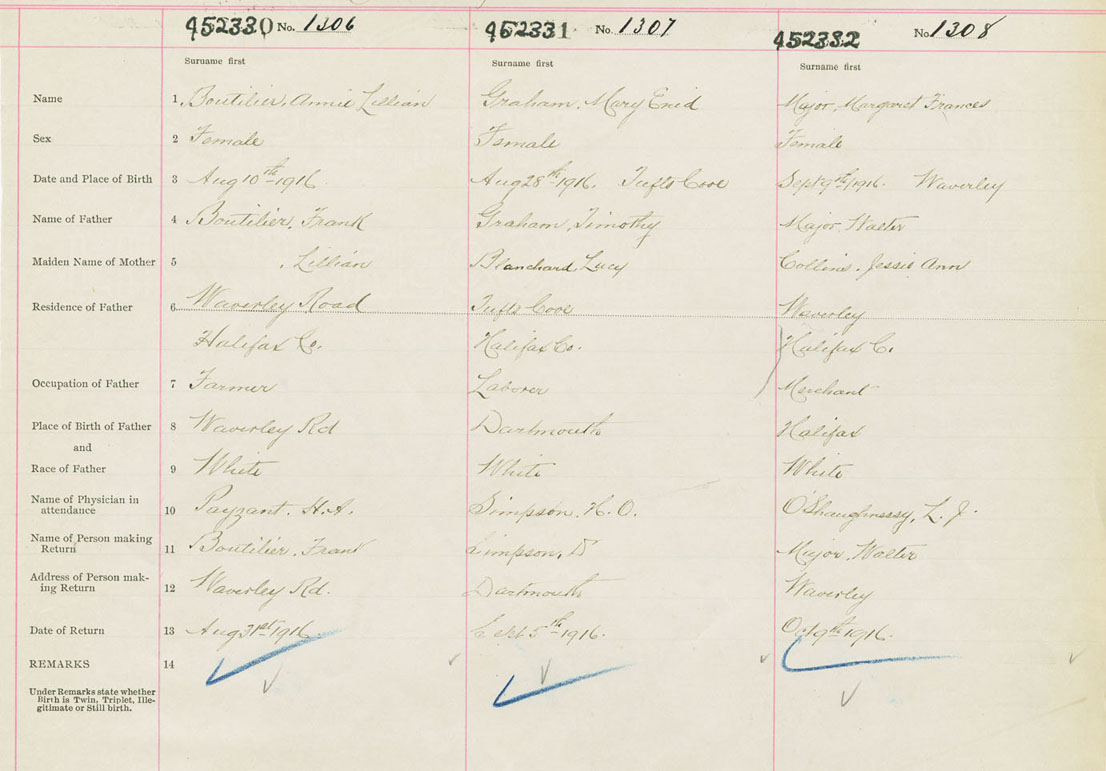 452330 No. 1306 452331 No. 1307 452332 No. 1308
Surname first Surname first Surname first
Name 1 Boutilier, Annie Lillian Graham, Mary Enid Major, Margaret Frances
Sex 2 Female Female Female
Date and Place of Birth 3 Aug 10th 1916 Aug 28th 1916. Tufts Cove Sept 9th/1916. Waverley
Name of Father 4 Boutilier, Frank Graham, Timothy Major, Walter
Maiden Name of Mother 5 , Lillian Blanchard Lucy Collins, Jessie Ann
Residence of Father 6 Waverley Road Tufts Cove Waverley
Halifax Co. Halifax Co. Halifax C.
Occupation of Father 7 Farmer Laborer Merchant
Place of Birth of Father 8 Waverley Rd Dartmouth Halifax
and
Race of Father 9 White White White
Name of Physician in
attendance 10 Payzant. H.A. Simpson, H. O. O'Shaughnessy, L. J.
Name of Person making
Return 11 Boutilier, Frank Simpson, Major, Walter
Address of Person mak-
ing Return 12 Waverley Rd. Dartmouth Waverley
Date of Return 13 Aug 31st 1916. Sept. 5th 1916. Oct 9th 1916.
REMARKS 14
Under Remarks state whether
Birth is Twin, Triplet, Ille-
gitimate or Still birth.